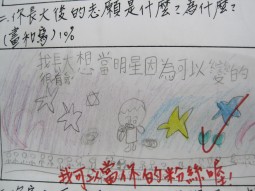 二、你長大後的志願是什麼？為什麼？
(畫和寫) 10%
我長大想當明星因為可以變的
很有
我可以當你的粉絲喔！